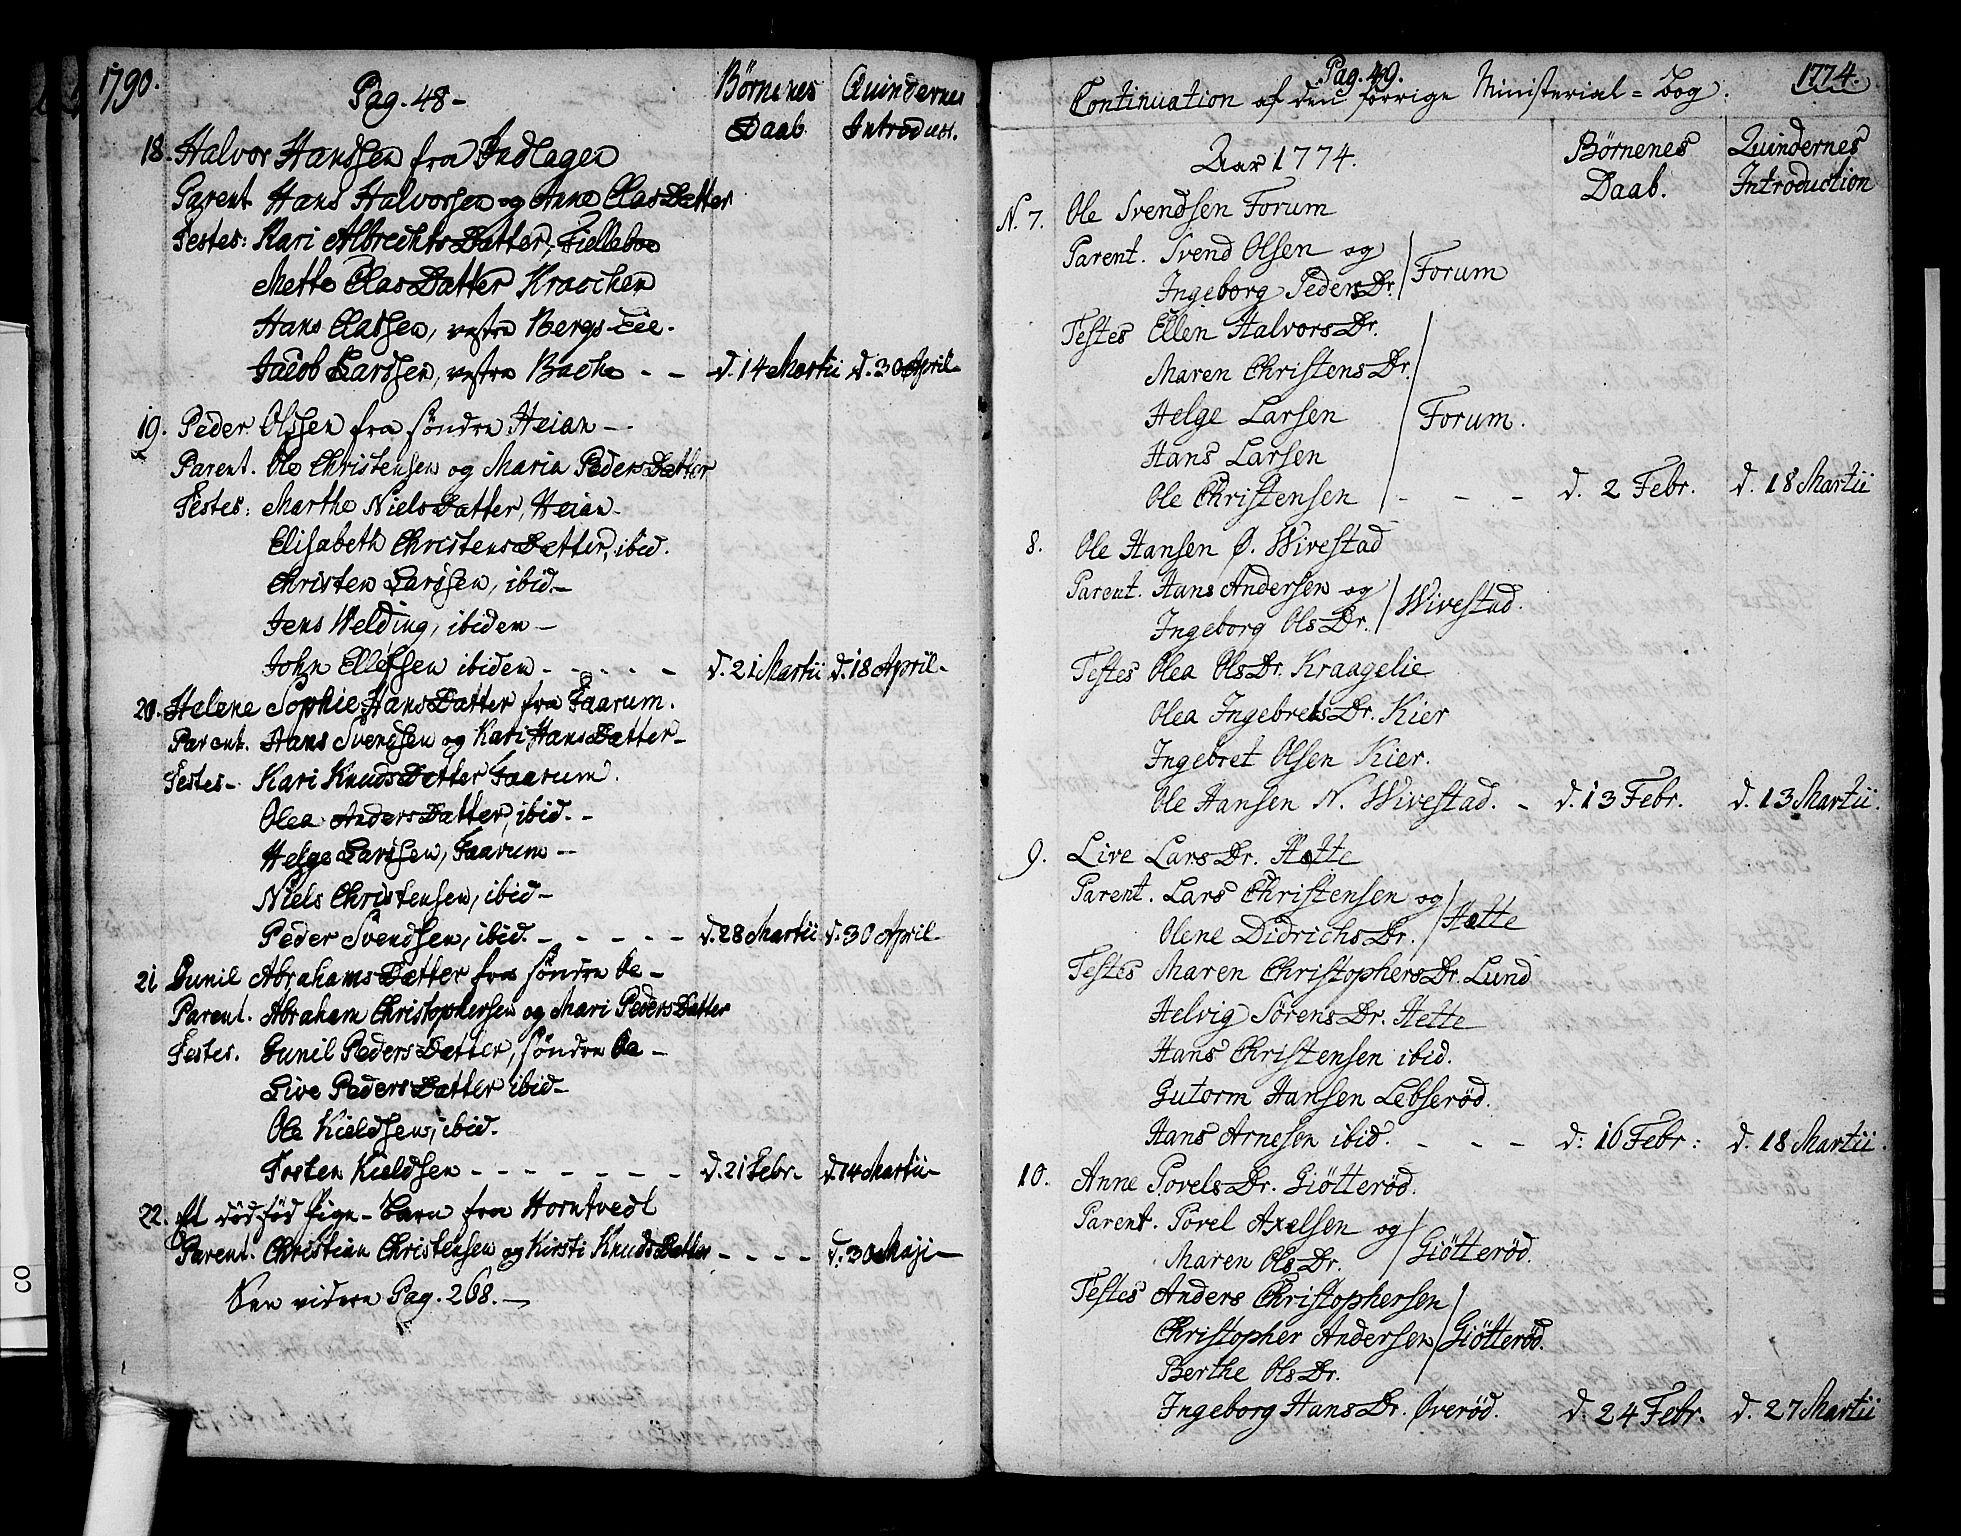 1790.
Pag. 48-
Börnenes Daab.
Quindernes Introduct.
18. Halvor Hanssen fra Indlagen
Parent Hans Halvorsen og Anne ClasDatter
Testes: Kari AlbrechtsDatter, Fielleboe
Mette ClasDatter Kraachen
Hans Classen, vestre Bergs-Eie.
Jacob Larssen, vestre Bache - - d. 14 Martii d. 30 April-
19. Peder Olssen fra søndre Heian-
Parent. Ole Christensen og Maria PedersDatter
Testes: Marthe NielsDatter, Heian-
Elisabeth ChristensDatter, ibid.
Christen Larssen, ibid-
Jens Welding, ibidem-
John Ellefsen ibidem - - - - - d. 21 Martii d. 18 April-
20. Helene Sophie HansDatter fra Faarum.
Parent. Hans Svendsen og Kari HansDatter-
Testes- Kari KnudsDatter Faarum.
Olea AndersDatter, ibid.-
Helge Larssen, Faarum-
Niels Christensen, ibid-
Peder Svendsen, ibid. - - - - - d. 28 Martii d. 30 April-
21 Gunil AbrahamsDatter fra søndre Oe-
Parent. Abraham Christophersen og Mari PedersDatter
Testes. Gunil PedersDatter, søndre Oe-
Live PedersDatter ibid-
Ole Kieldsen, ibid.
Tosten Kieldsen - - - - - - - d. 21 Febr- d. 14 Martii-
22. Et dödföd Pige-Barn fra Horntvedt
Parent. Christian Christensen og Kirsti KnudsDatter - - - - d: 30 Maji-
See videre Pag. 268.-
Pag. 49.
Continuation af den forrige Ministerial=Bog.
1774.
Aar 1774.
Börnenes Daab.
Quindernes Introduction
N. 7. Ole Svendsen Forum
Parent. Svend Olsen og
Ingeborg PedersDr. Forum
Testes Ellen HalvorsDr.
Maren ChristensDr.
Helge Larsen Forum.
Hans Larsen
Ole Christensen - - - d. 2 Febr. d. 18 Martii
8. Ole Hansen Ø. Wivestad
Parent. Hans Andersen og
Ingeborg OlsDr. Wivestad.
Testes Olea OlsDr. Kraagelie
Olea IngebretsDr. Kier
Ingebret Olsen Kier.
Ole Hansen N. Wivestad. - d. 13 Febr. d. 13 Martii.
9. Live LarsDr. Hette
Parent. Lars Christensen og
Olene DidrichsDr. Hette
Testes Maren ChristophersDr. Lund
Helvig SörensDr. Hette
Hans Christensen ibid.
Gutorm Hansen Lebseröd.
Hans Arnesen ibid. - - - d: 16 Febr: d. 18 Martii.
10. Anne PovelsDr. Giötteröd.
Parent. Povel Axelsen og
Maren OlsDr. Giötteröd.
Testes Anders Christophersen
Christopher Andersen Giötteröd.
Berthe OlsDr.
Ingeborg HansDr. Øveröd. d. 24 Febr. d. 27 Martii